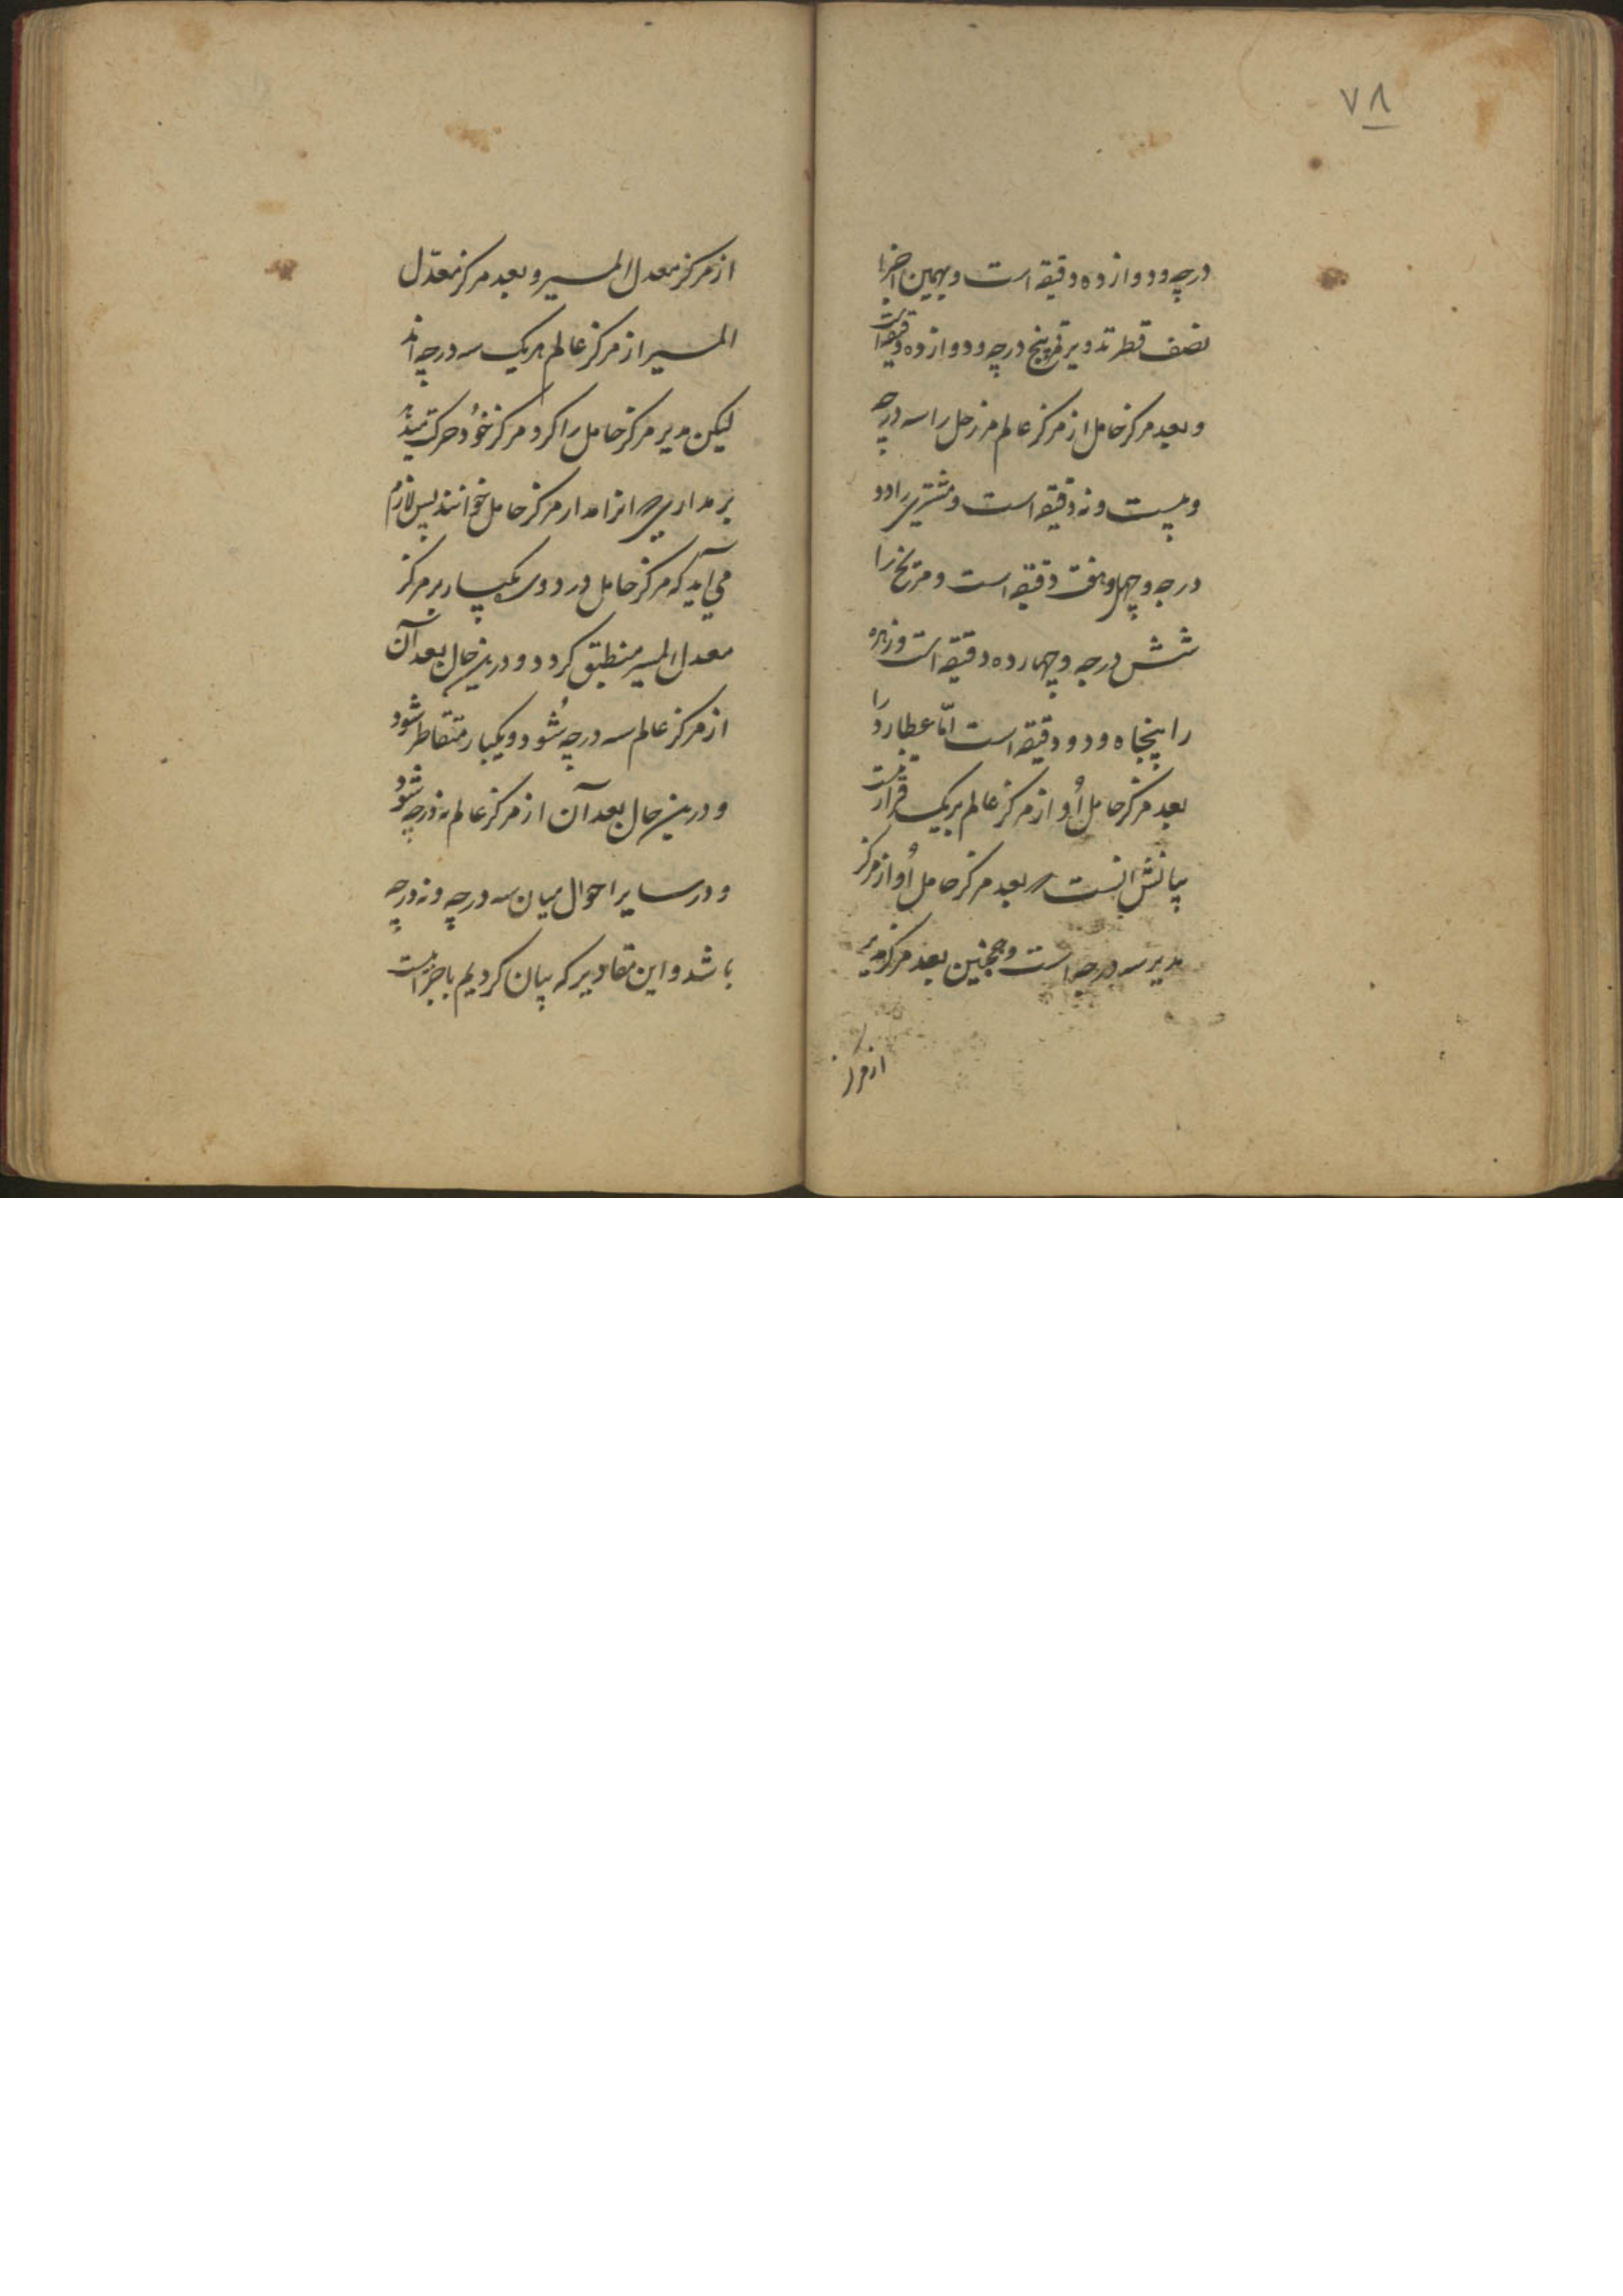 ۷۸
درجه و دوازده دقیقه است و بهمین اجزا
نصف قطر تدویر قمر پنج درجه و دوازده دقیقه است
و بعد مرکز حامل از مرکز عالم مر زحل را سه درجه
و بیست و نه دقیقه است و مشتری را دو
درجه و چهل و هفت دقیقه است و مریخ را
شش درجه و چهارده دقیقه است و زهره
را پنجاه و دو دقیقه است امّا عطارد را
بعد مرکز حامل أو از مرکز عالم بر یک قرار نیست
بیانش انست که بعد مرکز حامل أو از مرکز
مدیر سه درجه است و همچنین بعد مرکز مدیر
از مرکز
از مرکز معدل المسیر و بعد مرکز معدّل
المسیر از مرکز عالم هر یک سه درجه اند
لیکن مدیر مرکز حامل را کرد مرکز خود حرکت میدهد
بر مداری که انرا مدار مرکز حامل خوانند پس لازم
می آید که مرکز حامل در دوری یکبار بر مرکز
معدل المسیر منطبق کردد و درین حال بعد آن
از مرکز عالم سه درجه شود و یکبار متقاطر شود
و درین حال بعد آن از مرکز عالم نه درجه شود
و در سایر احوال میان سه درجه و نه درجه
باشد و این مقادیر که بیان کردیم باجزائیست